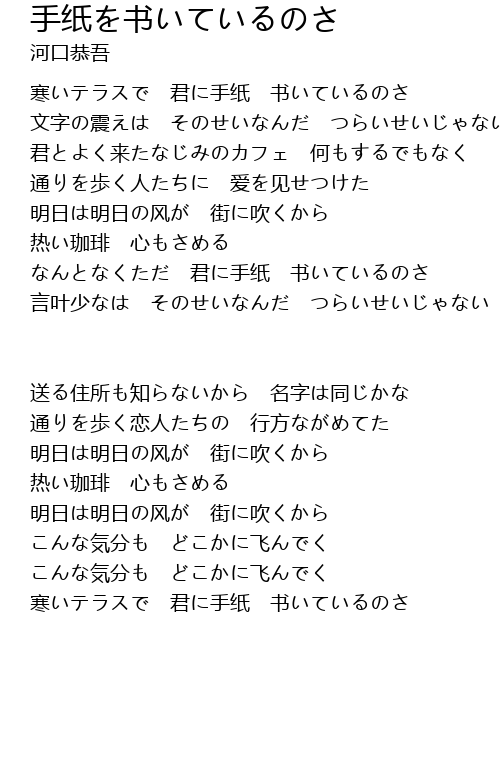 手纸を书いているのさ
河口恭吾
寒いテラスで　君に手纸　书いているのさ
文字の震えは　そのせいなんだ　つらいせいじゃない
君とよく来たなじみのカフェ　何もするでもなく
通りを歩く人たちに　爱を见せつけた
明日は明日の风が　街に吹くから
热い珈琲　心もさめる
なんとなくただ　君に手纸　书いているのさ
言叶少なは　そのせいなんだ　つらいせいじゃない
送る住所も知らないから　名字は同じかな
通りを歩く恋人たちの　行方ながめてた
明日は明日の风が　街に吹くから
热い珈琲　心もさめる
明日は明日の风が　街に吹くから
こんな気分も　どこかに飞んでく
こんな気分も　どこかに飞んでく
寒いテラスで　君に手纸　书いているのさ